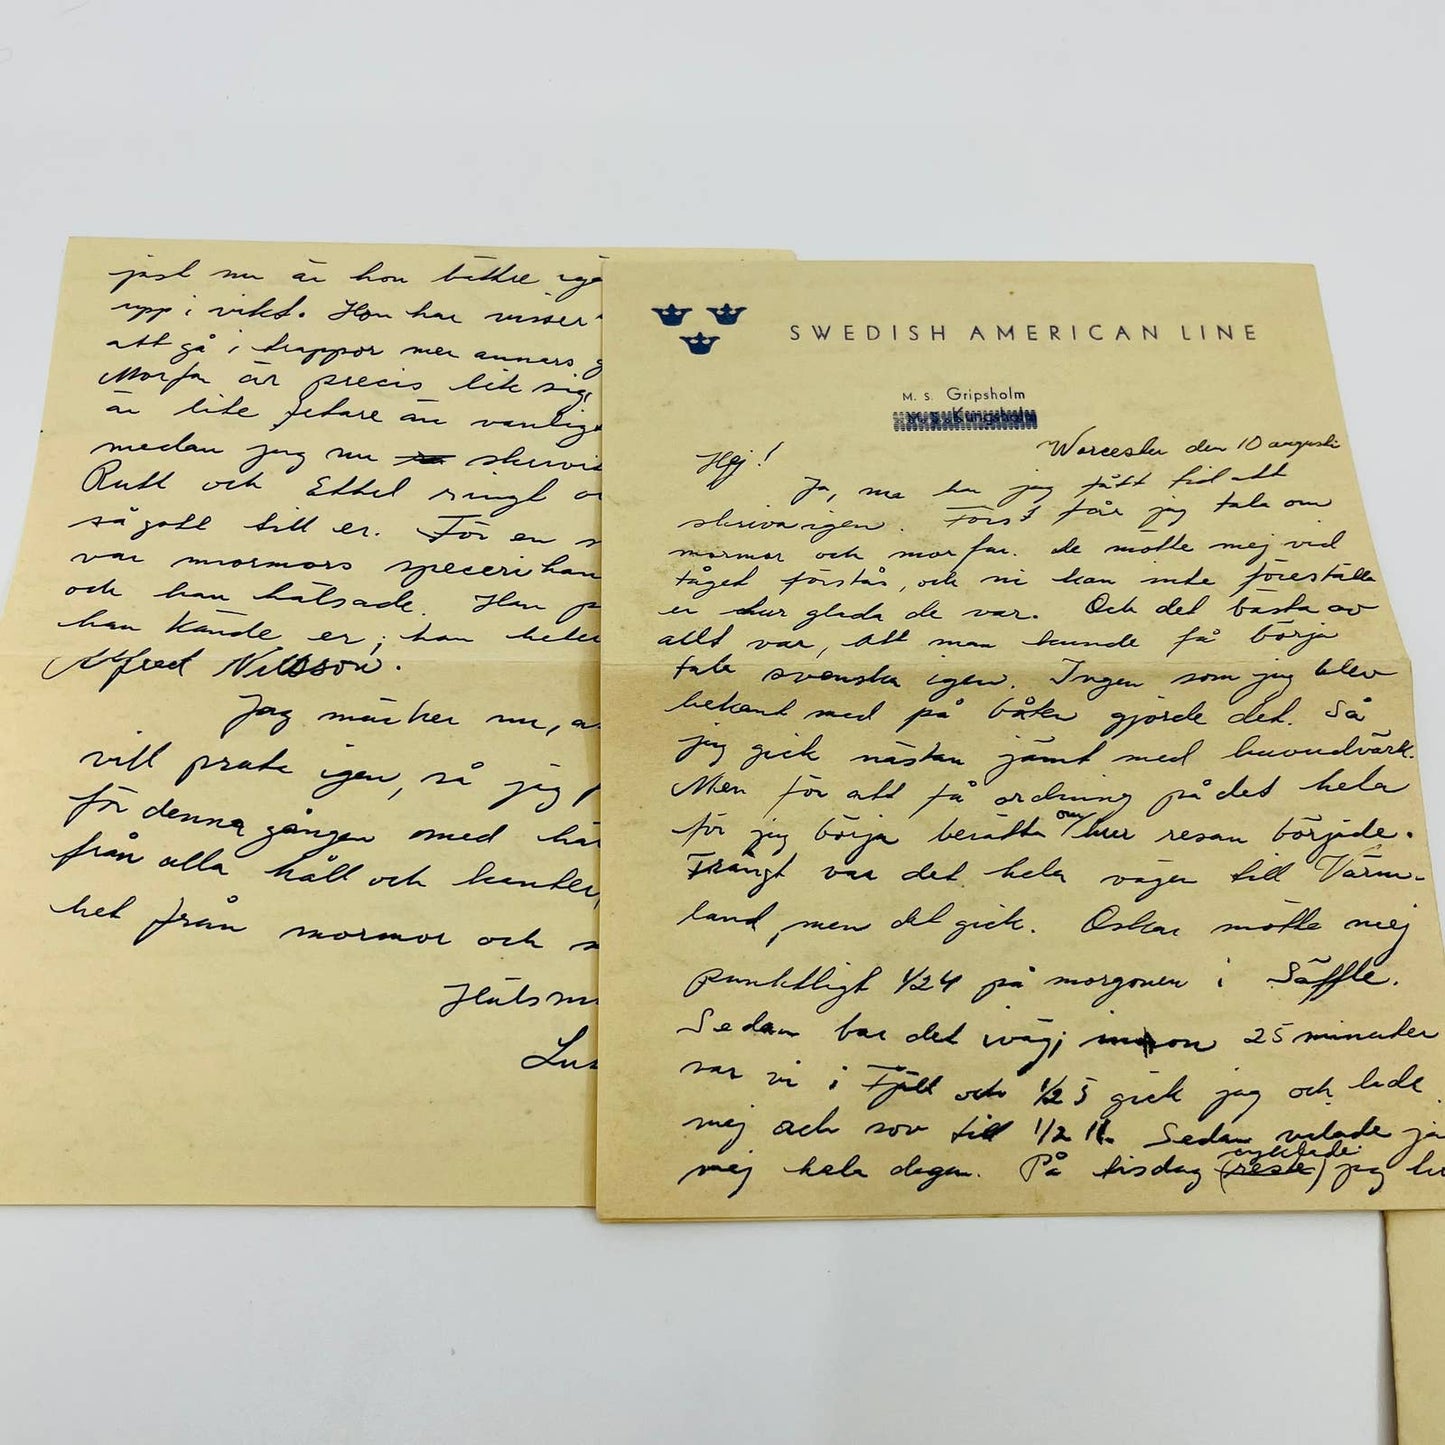 just nu är hon bättre
upp i vikt. Hon har visser
att gå i trappor men annars g
Morfar är precis lik sig,
är lite fetare än vanlig
medan jag nu skrivit
Rutt och Ethel ringt
så gott till er. För en
var mormors specerihan
och han hälsade. Han p
han kände er; han heter
Alfred Nilsson.
Jag märker nu, a
vill prata igen, så jag
för denna gången med häl
från alla håll och kanter,
het från mormor och
Hälsni
SWEDISH AMERICAN LINE
M. S. Gripsholm
M. S. Kungsholm
Worcester den 10 augusti
Hej!
Ja, nu har jag fått tid att
skriva igen. Först får jag tala om
mormor och morfar. de mötte mej vid
tåget förstås, och ni kan inte föreställa
er hur glada de var. Och det bästa av
allt var, att man kunde få börja
tala svenska igen. Ingen som jag blev
bekant med på båten gjorde det. Så
jag gick nästan jämt med huvudvärk.
Men för att få ordning på det hela
får jag börja berätta om hur resan började.
Trångt var det hela vägen till Värm-
land, men det gick. Oskar mötte mej
punktligt 1/2 4 på morgonen i Säffle.
Sedan bar det iväg; inom 25 minuter
var vi i Fjäll och 1/2 5 gick jag och lade
mej och sov till 1/2 11. Sedan vilade ja
mej hela dagen. På tisdag (reste) cyklade jag